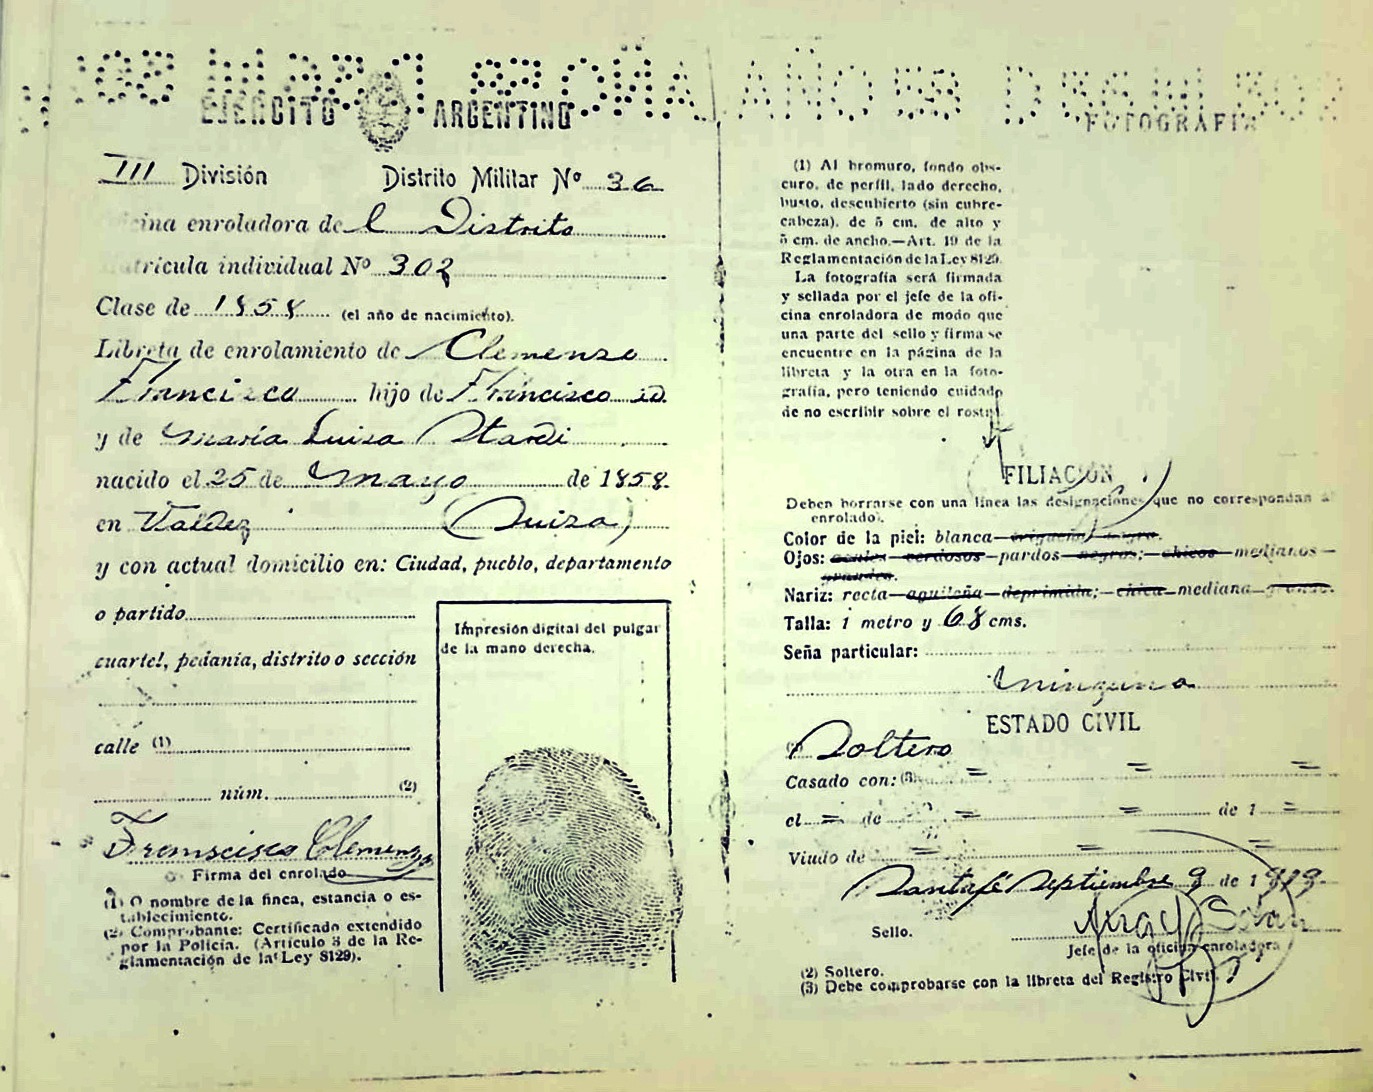 EJERCITO ARGENTINO
III División Distrito Militar Nº 36
cina enroladora de l Distrito
atricula individual Nº 302
Clase de 1858 (el año de nacimiento).
Libreta de enrolamiento de Clemenzo
Francisco hijo de Francisco id.
y de María Luisa Stardi
nacido el 25 de Mayo de 1858
en Valdez (Suiza)
y con actual domicilio en: Ciudad, pueblo, departamento
o partido
cuartel, pedanía, distrito o sección
calle (1)
núm. (2)
Impresión digital del pulgar
de la mano derecha.
Franscisco Clemenzo
Firma del enrolado
(1) O nombre de la finca, estancia o es-
tablecimiento.
(2) Comprobante: Certificado extendido
por la Policía. (Artículo 3 de la Re-
glamentación de la Ley 8129).
FOTOGRAFIA
(1) Al bromuro, fondo obs-
curo, de perfil, lado derecho,
busto, descubierto (sin cubre-
cabeza), de 5 cm. de alto y
5 cm. de ancho.—Art. 19 de la
Reglamentación de la Ley 8129.
La fotografía será firmada
y sellada por el jefe de la ofi-
cina enroladora de modo que
una parte del sello y firma se
encuentre en la página de la
libreta y la otra en la foto-
grafía, pero teniendo cuidado
de no escribir sobre el rostro.
FILIACIÓN
Deben borrarse con una línea las designaciones que no correspondan al
enrolado.
Color de la piel: blanca—trigueña—negra.
Ojos: azules—verdosos—pardos—negros;—chicos—medianos—
grandes.
Nariz: recta—aguileña—deprimida;—chica—mediana—grande.
Talla: 1 metro y 68 cms.
Seña particular:
ninguna
ESTADO CIVIL
(2) Soltero
Casado con: (3) = = =
el = de = = de 1 =
Viudo de = = =
Santa fé Septiembre 9 de 1
Sello.
Angel
Jefe de la oficina enroladora
(2) Soltero.
(3) Debe comprobarse con la libreta del Registro Civil.